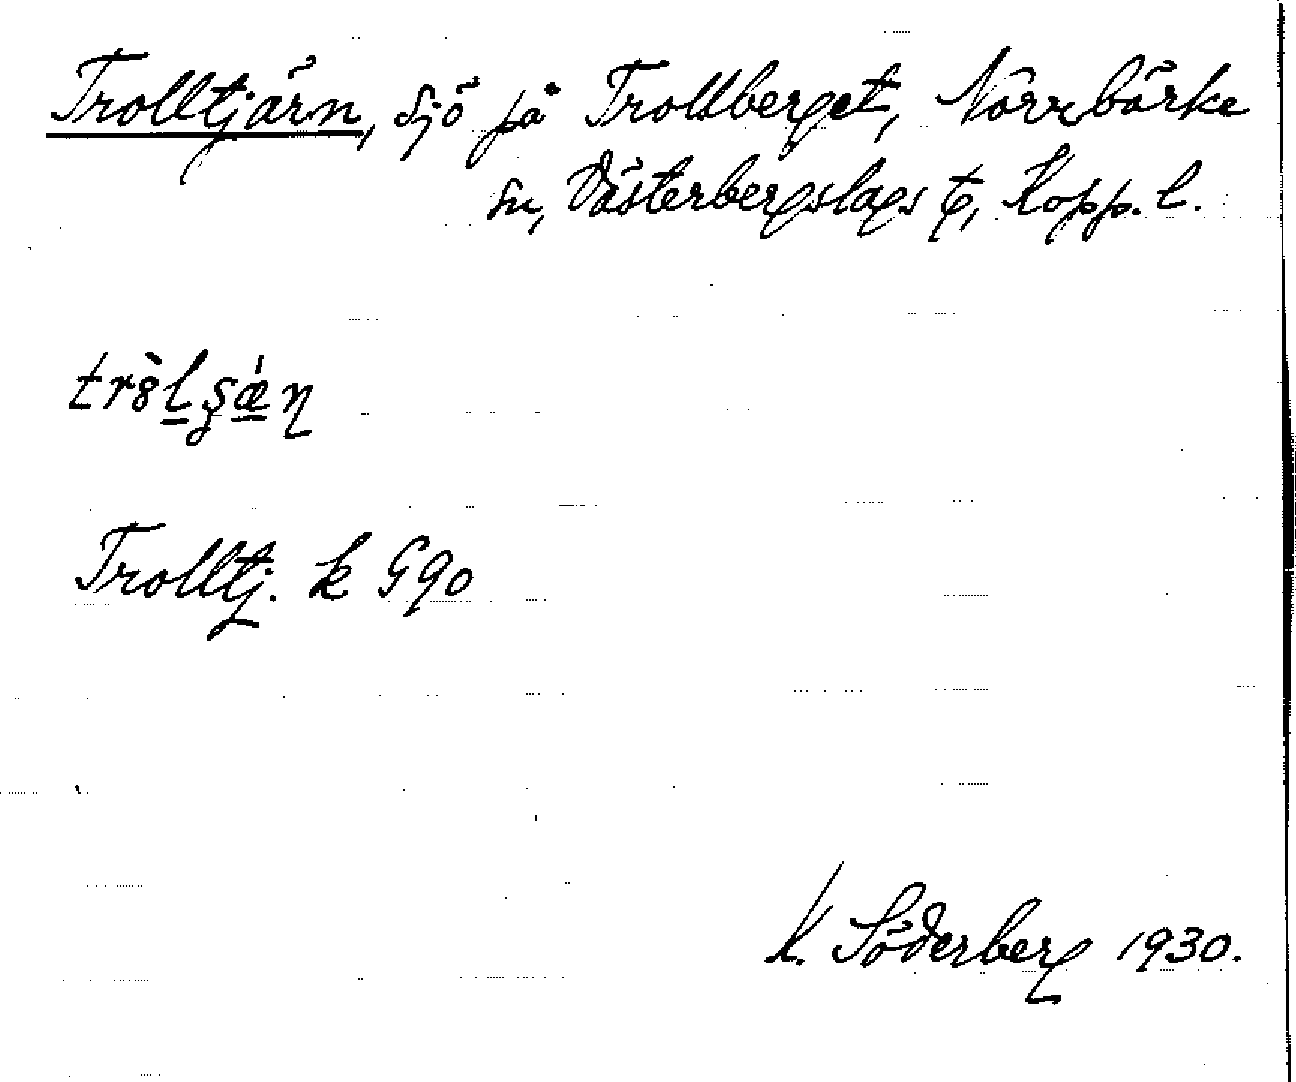 Trolltjärn, sjö på Trollberget, Norrbärke
sn, Västerbergslags t, Kopp. l.
Trolltj. k G90
K. Söderberg 1930.